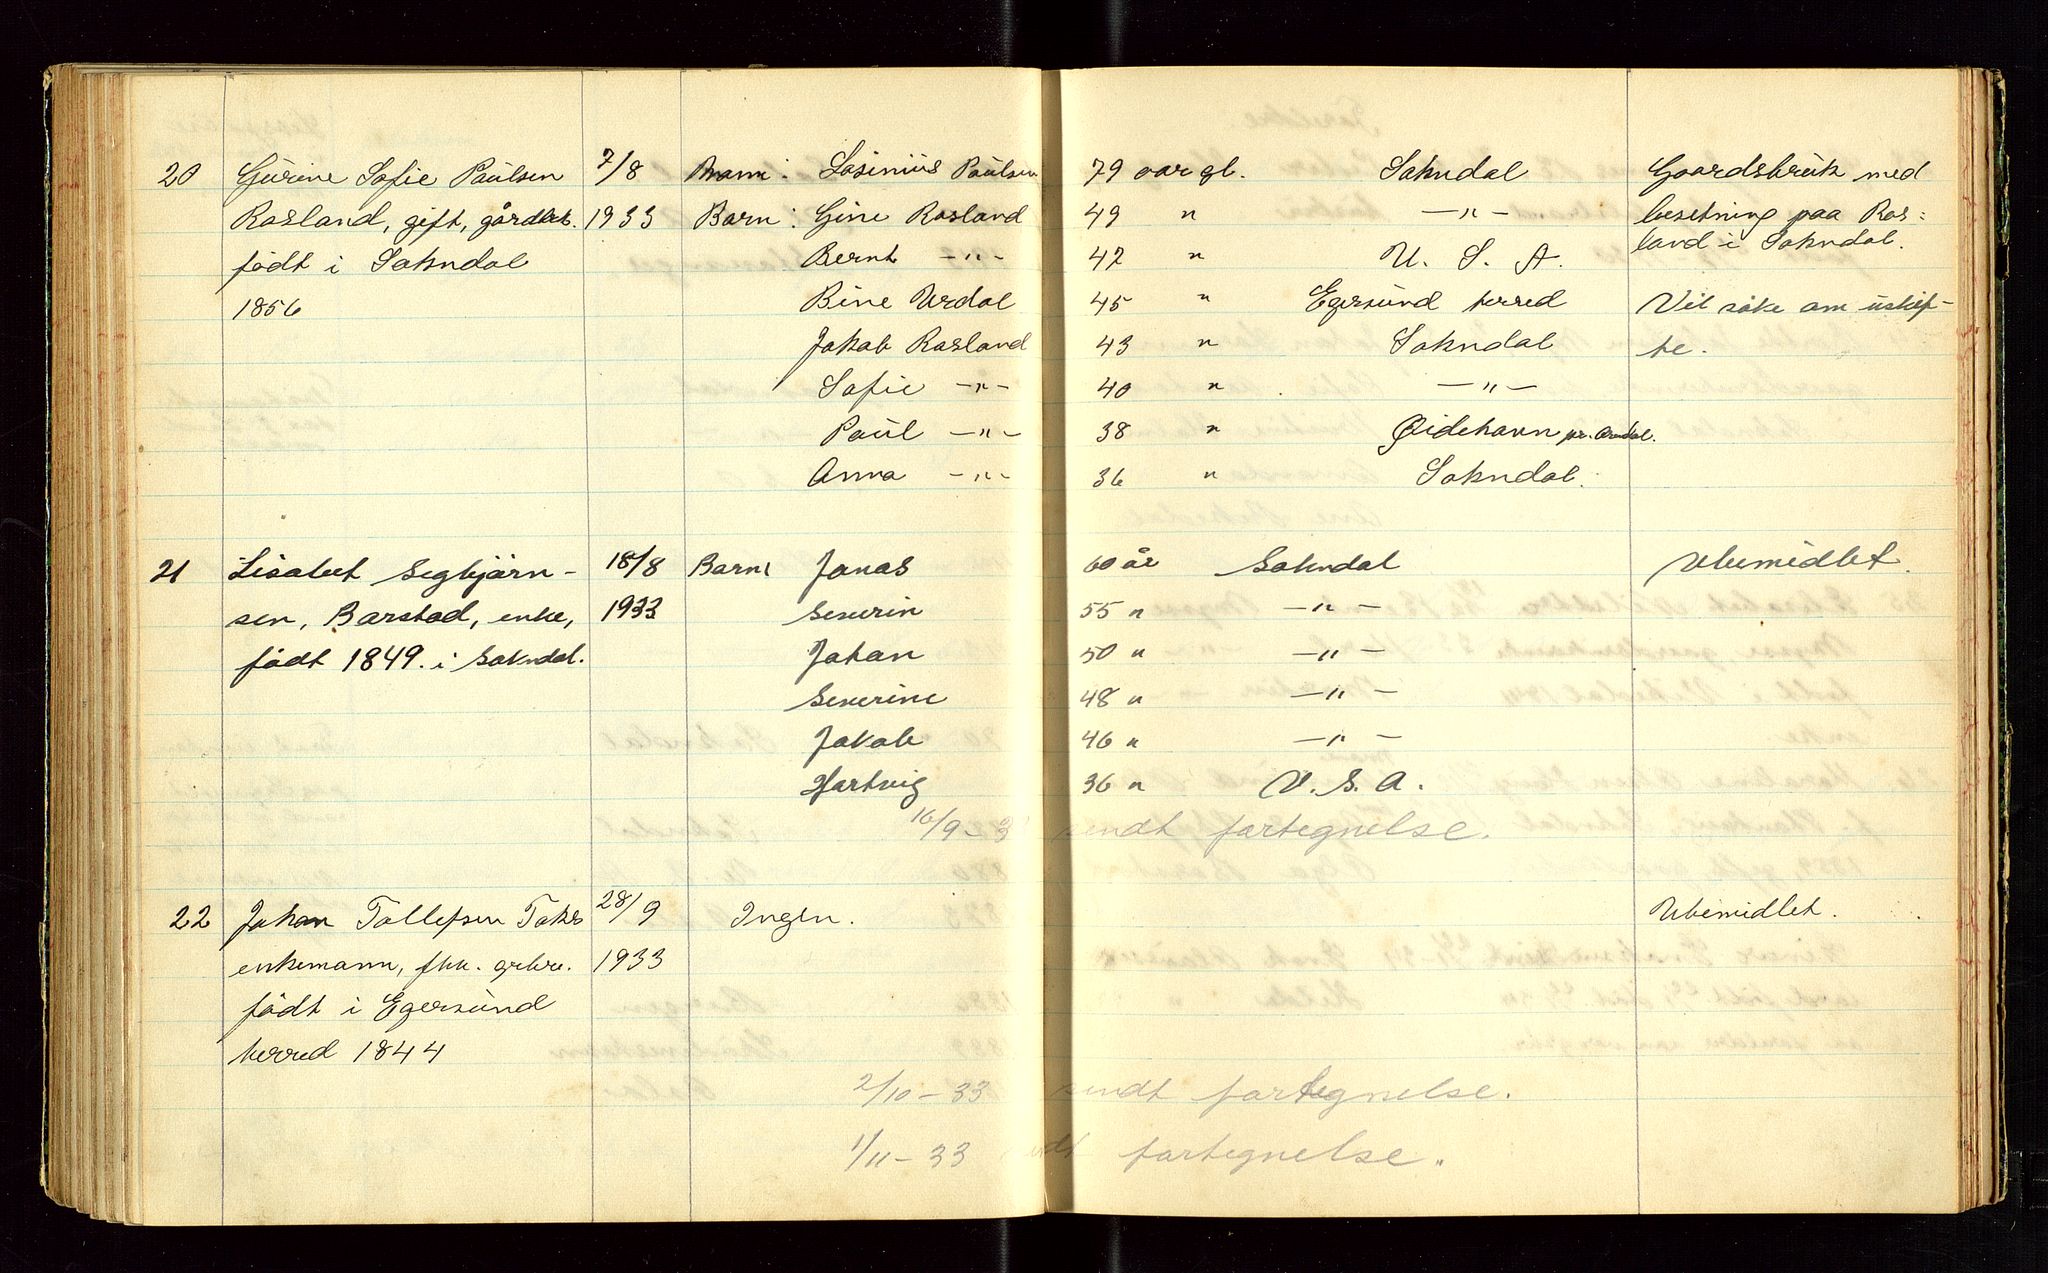 20 Gurine Sofie Paulsen 7/8 Mann: Sosinius Paulsen 79 aar gl. Sokndal Gaardsbruk med
Rosland, gift, gårdbr. 1933 Barn: Gine Rosland 49 " —"— besetning paa Ros=
født i Sokndal Bernt —"— 42 " U. S. A. land i Sokndal.
1856 Bine Urdal 45 " Egersund herred Vil søke om uskif-
Jakob Rosland 43 " Sokndal te.
Sofie —"— 40 " —"—
Paul —"— 38 " Eidehavn pr. Arendal.
Anna —"— 36 " Sokndal.
21 Lisabet Segbjørn- 18/8 Barn: Jonas 60 år Sokndal Ubemidlet.
sen, Barstad, enke, 1933 Severin 55 " —"—
født 1849. i Sokndal. Johan 50 " —"—
Severine 48 " —"—
Jakob 46 " —"—
Hartvig 36 " U. S. A.
16/9-3 sendt fortegnelse.
22 Johan Tollefsen 28/9 Ingen. Ubemidlet.
enkemann, fhv. grbr. 1933
født i Egersund
herred 1844
2/10-33 sendt fortegnelse.
1/11-33 sendt fortegnelse.